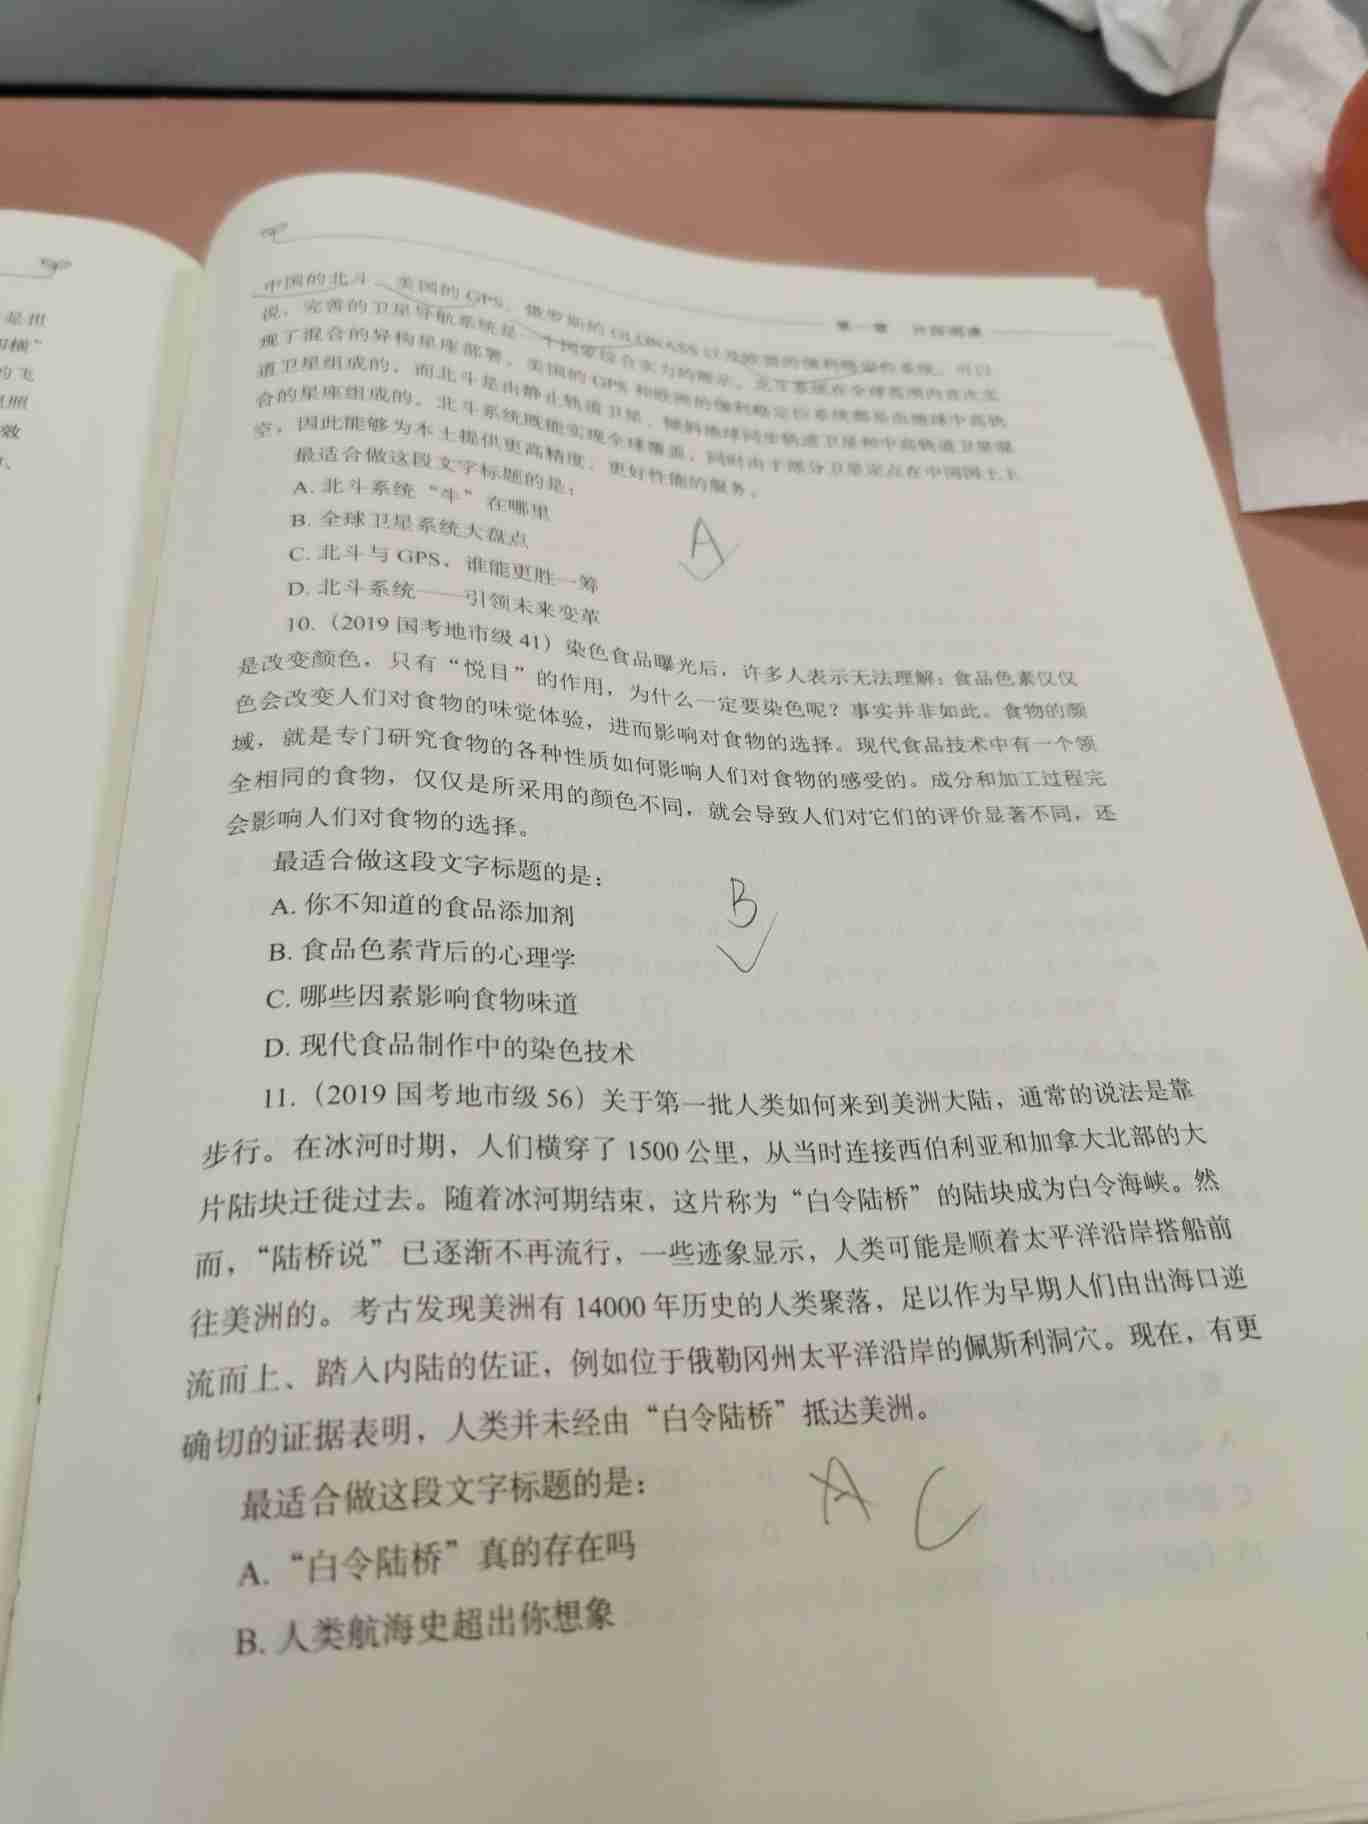 第一章 片段阅读
中国的北斗、美国的GPS、俄罗斯的GLONASS以及欧盟的伽利略定位系统。可以
说，完善的卫星导航系统是一个国家综合实力的展示。北斗系统在全球范围内首次实
现了混合的异构星座部署，美国的GPS和欧洲的伽利略定位系统都是由地球中高轨
道卫星组成的，而北斗是由静止轨道卫星、倾斜地球同步轨道卫星和中高轨道卫星混
合的星座组成的。北斗系统既能实现全球覆盖，同时由于部分卫星定点在中国国土上
空，因此能够为本土提供更高精度、更好性能的服务。
最适合做这段文字标题的是：
A. 北斗系统“牛”在哪里
B. 全球卫星系统大盘点
C. 北斗与GPS，谁能更胜一筹
D. 北斗系统——引领未来变革
A
10.（2019国考地市级41）染色食品曝光后，许多人表示无法理解：食品色素仅仅
是改变颜色，只有“悦目”的作用，为什么一定要染色呢？事实并非如此。食物的颜
色会改变人们对食物的味觉体验，进而影响对食物的选择。现代食品技术中有一个领
域，就是专门研究食物的各种性质如何影响人们对食物的感受的。成分和加工过程完
全相同的食物，仅仅是所采用的颜色不同，就会导致人们对它们的评价显著不同，还
会影响人们对食物的选择。
最适合做这段文字标题的是：
A. 你不知道的食品添加剂
B. 食品色素背后的心理学
C. 哪些因素影响食物味道
D. 现代食品制作中的染色技术
B
11.（2019国考地市级56）关于第一批人类如何来到美洲大陆，通常的说法是靠
步行。在冰河时期，人们横穿了1500公里，从当时连接西伯利亚和加拿大北部的大
片陆块迁徙过去。随着冰河期结束，这片称为“白令陆桥”的陆块成为白令海峡。然
而，“陆桥说”已逐渐不再流行，一些迹象显示，人类可能是顺着太平洋沿岸搭船前
往美洲的。考古发现美洲有14000年历史的人类聚落，足以作为早期人们由出海口逆
流而上、踏入内陆的佐证，例如位于俄勒冈州太平洋沿岸的佩斯利洞穴。现在，有更
确切的证据表明，人类并未经由“白令陆桥”抵达美洲。
最适合做这段文字标题的是：
A. “白令陆桥”真的存在吗
B. 人类航海史超出你想象
A C